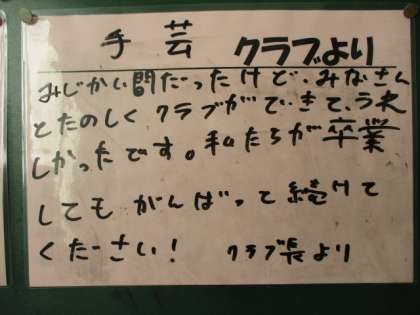 手芸 クラブより
みじかい間だったけど、みなさん
とたのしく クラブができて、うれ
しかったです。私たちが卒業
しても がんばって続けて
ください! クラブ長より